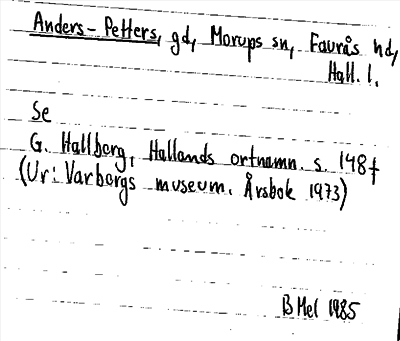 Anders-Petters, gd, Morups sn, Faurås hd,
Hall. l.
Se
G. Hallberg, Hallands ortnamn. s. 148f
(Ur: Varbergs museum. Årsbok 1973)
B Mel 1985